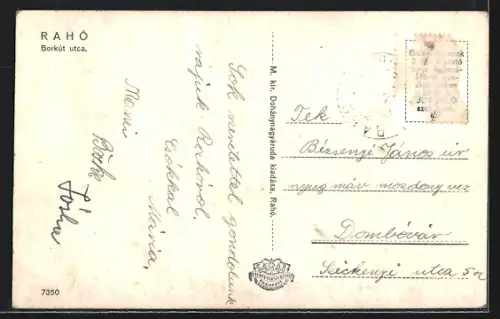 RAHÓ
Borkút utca.
Sok szeretettel gondolunk
rájuk Rahóról.
Csókkal
Mária,
Manci
Böske
M. kir. Dohánynagyáruda kiadása, Rahó.
Tek
Bézsenyi János úr
nyug máv mozdony vez
Dombóvár
Széchenyi utca 5
7350